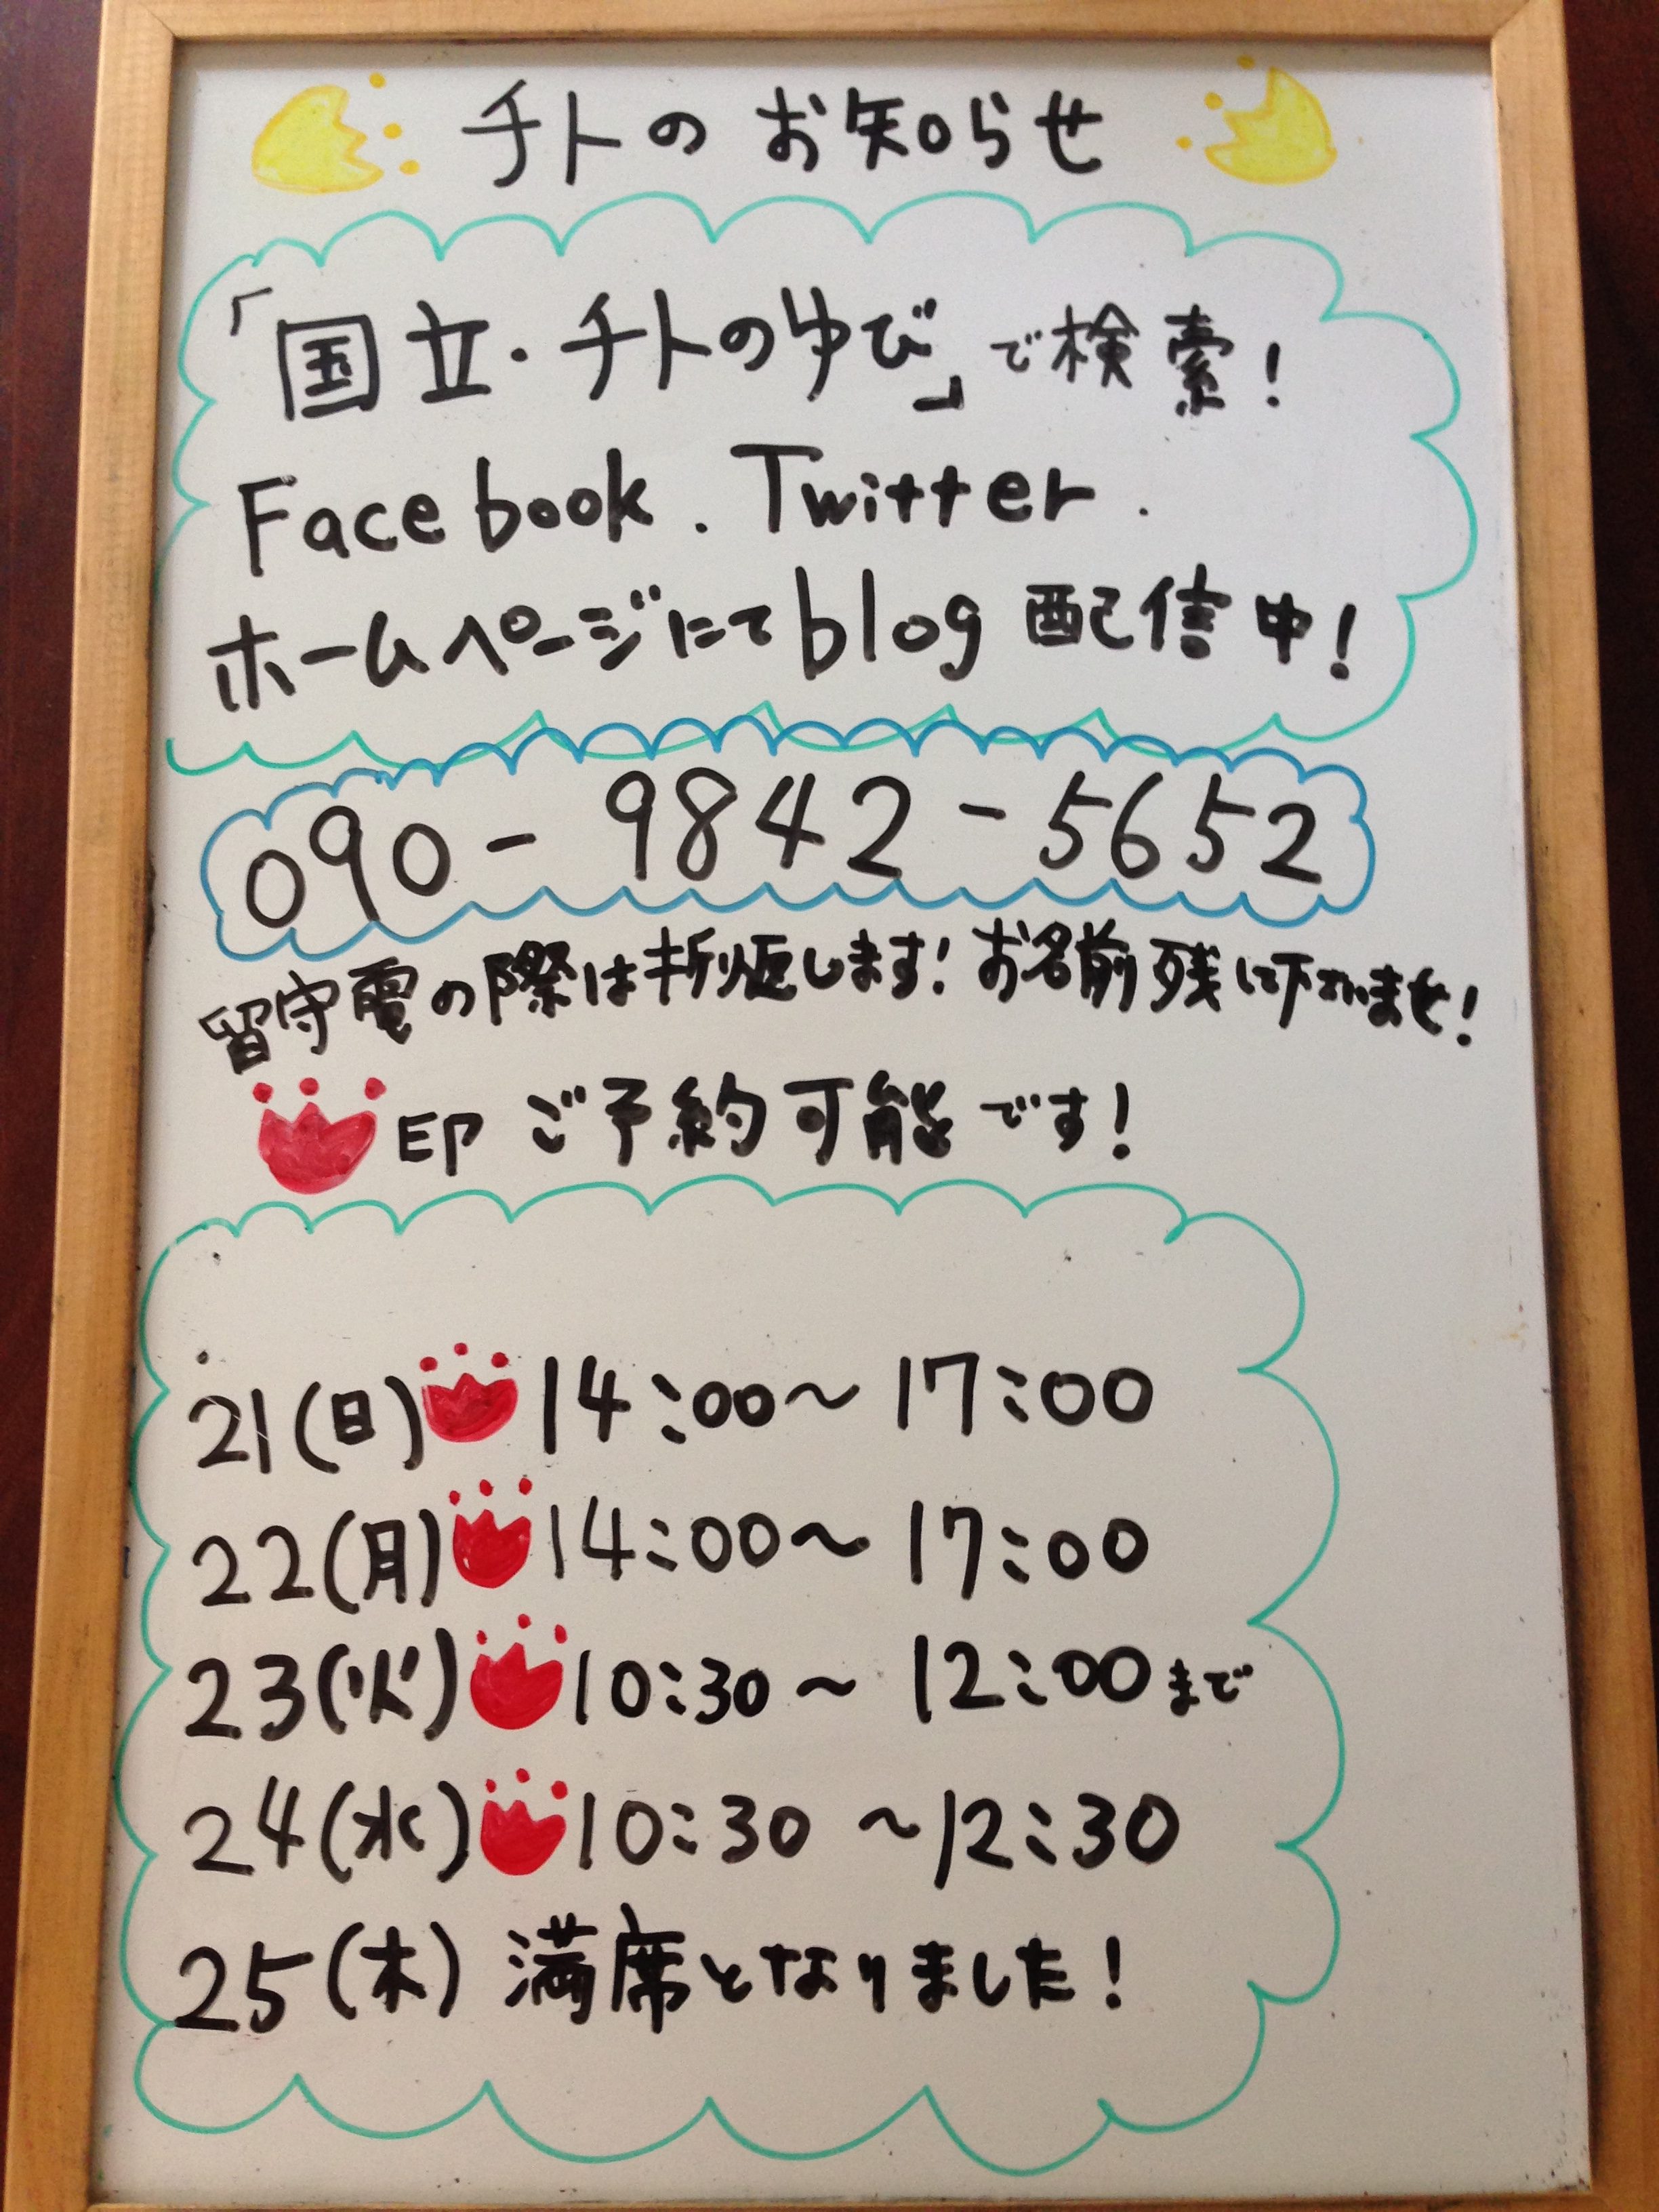 チトのお知らせ
「国立・チトのゆび」で検索!
Facebook. Twitter.
ホームページにてblog配信中!
090-9842-5652
留守電の際は折り返します!お名前残して下さいませ!
印 ご予約可能です!
21(日) 14:00〜17:00
22(月) 14:00〜17:00
23(火) 10:30〜12:00まで
24(水) 10:30〜12:30
25(木) 満席となりました!